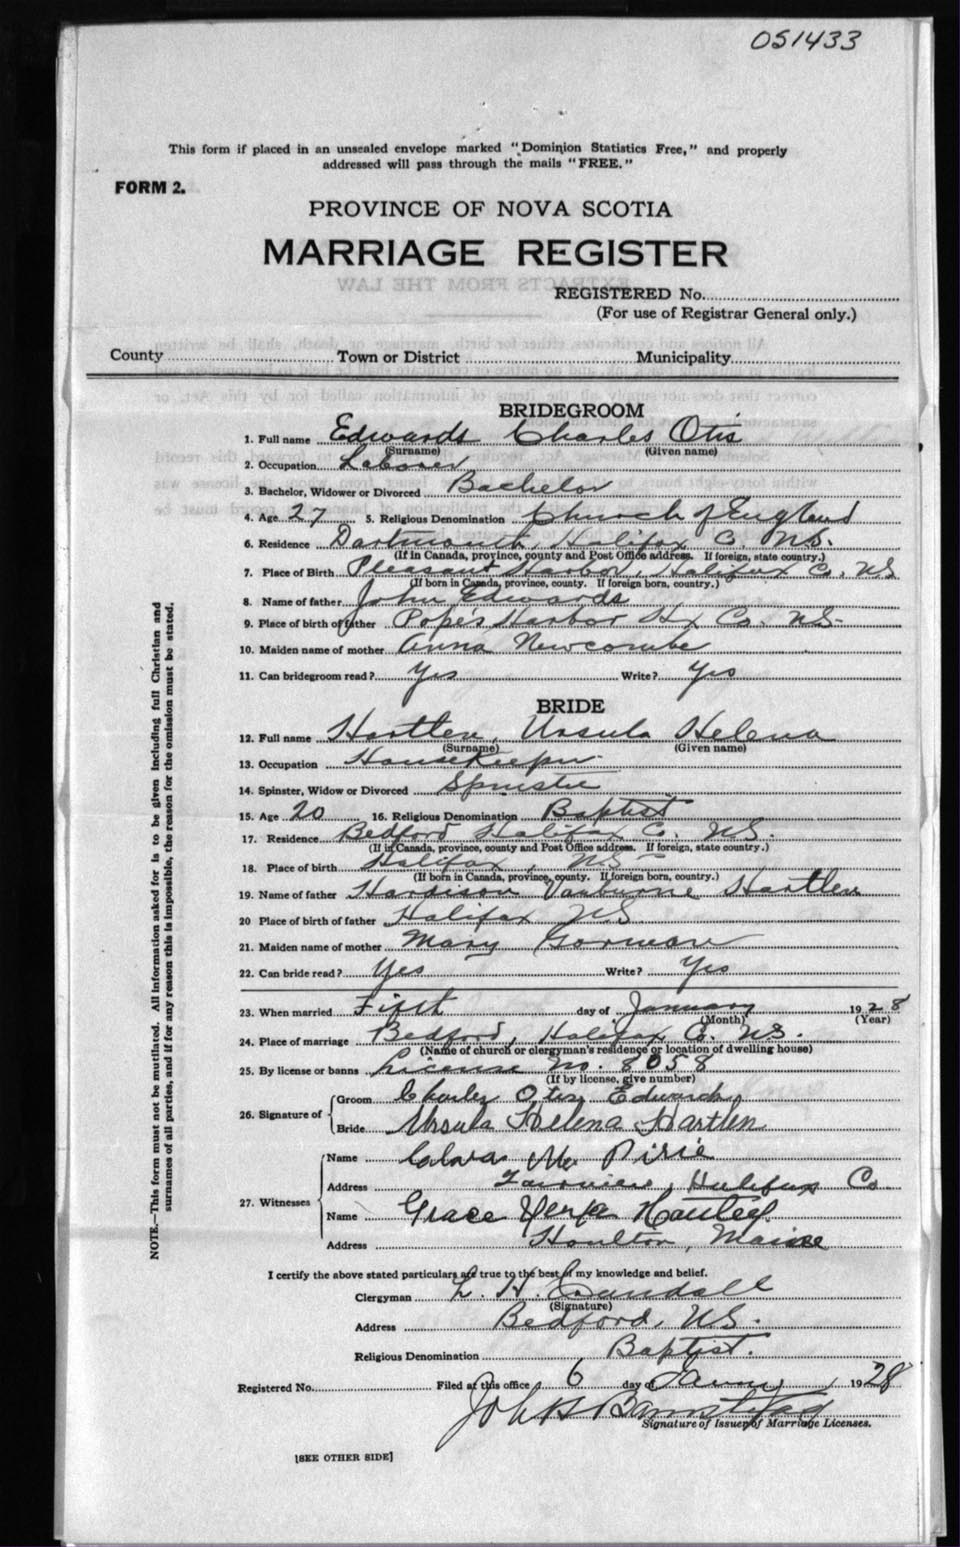 051433
This form if placed in an unsealed envelope marked "Dominion Statistics Free," and properly
addressed will pass through the mails "FREE."
FORM 2.
PROVINCE OF NOVA SCOTIA
MARRIAGE REGISTER
EXTRACTS FROM THE LAW
REGISTERED No.
(For use of Registrar General only.)
County Town or District Municipality
BRIDEGROOM
1. Full name Edwards Charles Otis
(Surname) (Given name)
2. Occupation Laborer
3. Bachelor, Widower or Divorced Bachelor
4. Age 27 5. Religious Denomination Church of England
6. Residence Dartmouth, Halifax Co. N.S.
(If in Canada, province, county and Post Office address. If foreign, state country.)
7. Place of Birth Pleasant Harbor, Halifax Co. N.S
(If born in Canada, province, county. If foreign born, country.)
8. Name of father John Edwards
9. Place of birth of father Pope's Harbor Hx Co. N.S.
10. Maiden name of mother Anna Newcombe
11. Can bridegroom read? Yes Write? Yes
BRIDE
12. Full name Hartlen, Ursula Helena
(Surname) (Given name)
13. Occupation Housekeeper
14. Spinster, Widow or Divorced Spinster
15. Age 20 16. Religious Denomination Baptist
17. Residence Bedford Halifax Co. N.S.
(If in Canada, province, county and Post Office address. If foreign, state country.)
18. Place of birth Halifax, N.S.
(If born in Canada, province, county. If foreign born, country.)
19. Name of father Hardison Vanburne Hartlen
20 Place of birth of father Halifax N.S
21. Maiden name of mother Mary Gorman
22. Can bride read? Yes Write? Yes
23. When married First day of January 1928
(Month) (Year)
24. Place of marriage Bedford, Halifax Co. N.S.
(Name of church or clergyman's residence or location of dwelling house)
25. By license or banns License No. 8058
(If by license, give number)
26. Signature of
Groom Charles Otis Edwards
Bride Ursula Helena Hartlen
27. Witnesses
Name Clara M. Pirie
Address Fairview, Halifax Co
Name Grace
Address Houlton, Maine
I certify the above stated particulars are true to the best of my knowledge and belief.
Clergyman L. H. Crandall
(Signature)
Address Bedford, N.S.
Religious Denomination Baptist.
Registered No. Filed at this office 6 day of January 1928
Signature of Issuer of Marriage Licenses.
[SEE OTHER SIDE]
NOTE.—This form must not be mutilated. All information asked for is to be given including full Christian and
surnames of all parties, and if for any reason this is impossible, the reason for the omission must be stated.